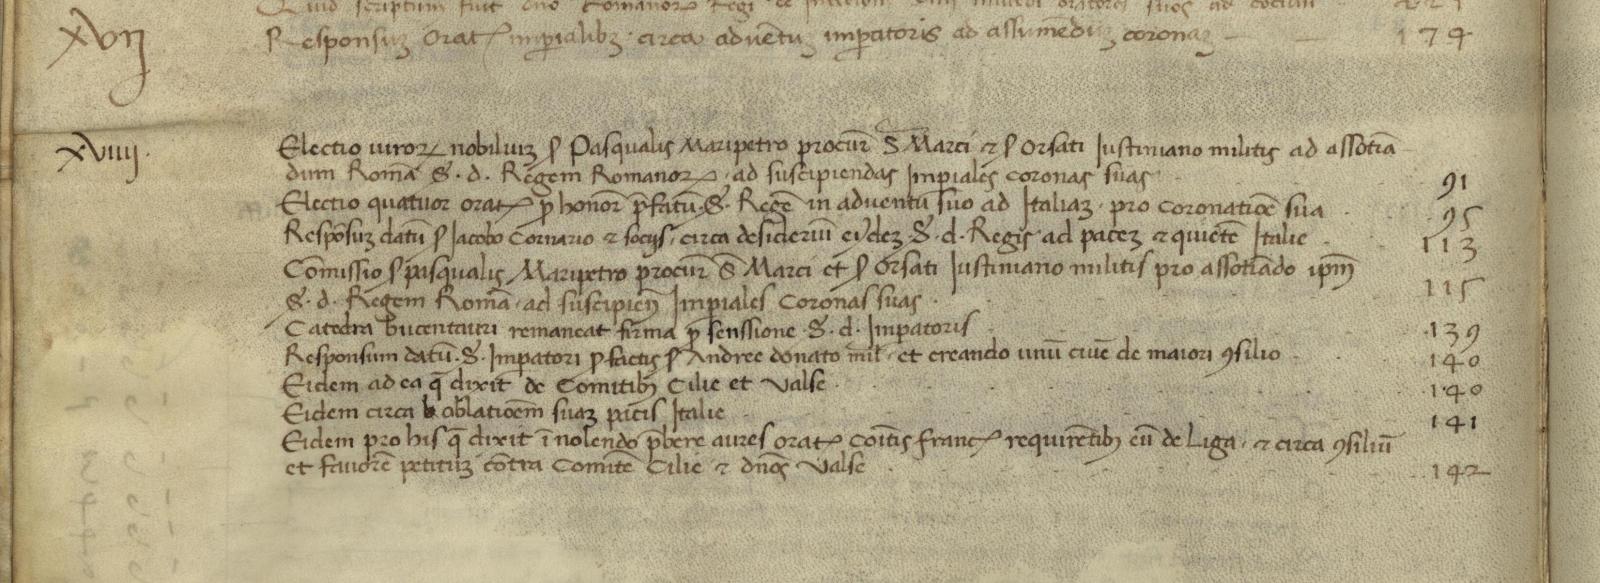 Quid scriptum fuit dno Romanoꝝ Regi
xvij Responsuꝫ Oratꝝ imꝑialibꝫ circa aduētuꝫ imꝑatoris ad assumēduꝫ coronaꝫ 174
xviiij. Electio uiroꝝ nobiliuꝫ S Pasqualis Maripetro procur̄ S̄ Marci ⁊ S Orsati Iustiniano militis ad assotiā
dum Romā S̄. d. Regem Romanoꝝ ad suscipiendas Imꝑiales coronas suas 91
Electio quatuor oratꝝ ꝑ honor̄ p̄fatū S̄. Regē in aduentu suo ad Italiaꝫ pro coronatiōe sua 95
Respōsuꝫ datū S Iacobo Cornario ⁊ socijs, circa desideriū eiꝰdeꝫ S̄. d. Regis ad paceꝫ ⁊ quietē Italie 113
Cōmissio S pasqualis Maripetro procur̄ S̄ Marci et S Orsati Iustiniano militis pro assotiādo ip̄m
S̄. d. Regem Romā ad suscipień Imꝑiales Coronas suas 115
Catedra bucentauri remaneat firma ꝓ senssione S̄. d. Imꝑatoris 139
Responsum datū S̄. Imꝑatori ꝑ factis S Andree donato mil̄ et creando unū ciuē de maiori ꝯsilio 140
Eidem ad ea q̄ dixit de Comitibꝫ Cilie et Valse 140
Eidem circa oblatiōem suaꝫ pacis Italie 141
Eidem pro his q̄ dixit ī nolendo p̄bere aures oratꝝ Coītis Francꝝ requirētibꝫ eū de Liga ⁊ circa ꝯsiliū
et fauorē petituꝫ cōtra Comitē Cilie ⁊ dn̄os Valse 142